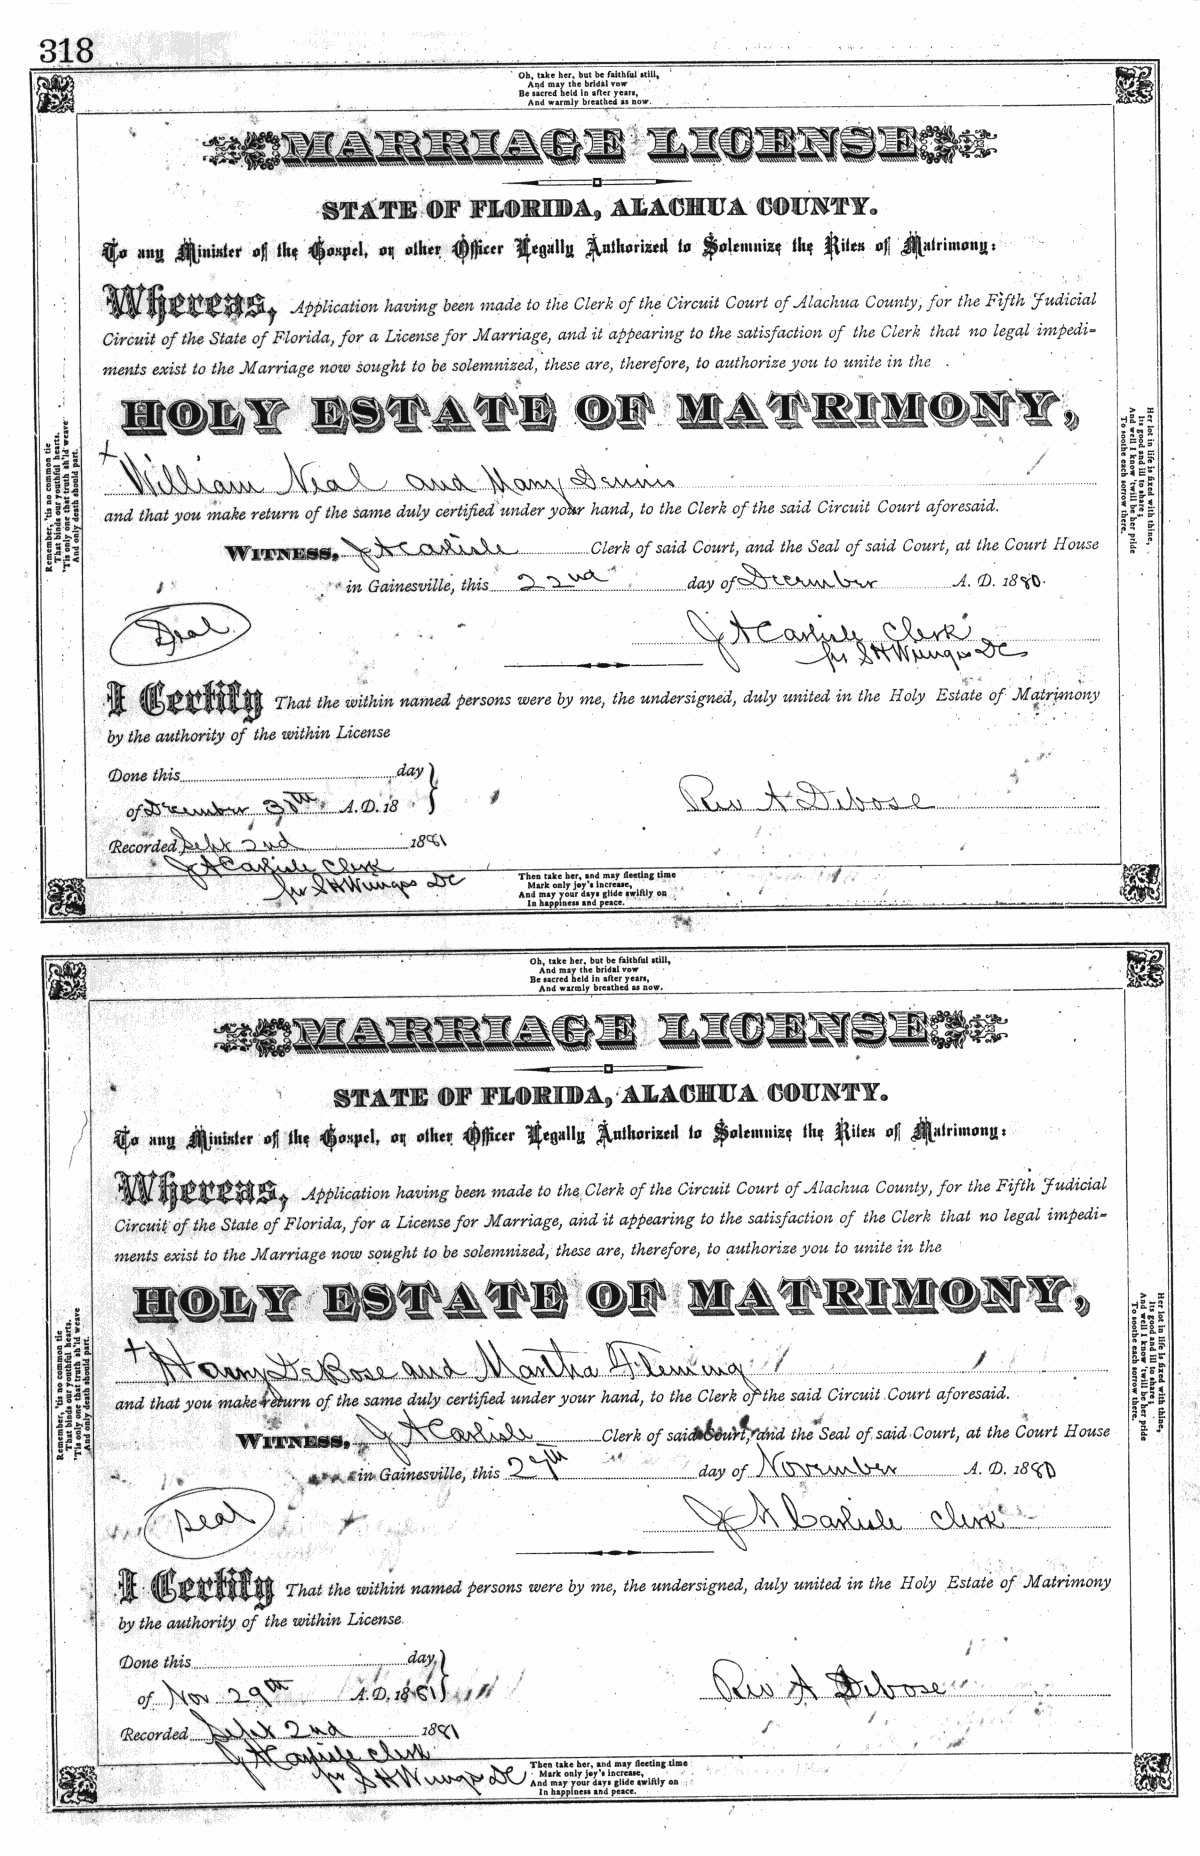 318
Oh, take her, but be faithful still,
And may the bridal vow
Be sacred held in after years,
And warmly breathed as now.
MARRIAGE LICENSE
STATE OF FLORIDA, ALACHUA COUNTY.
To any Minister of the Gospel, or other Officer Legally Authorized to Solemnize the Rites of Matrimony:
Whereas, Application having been made to the Clerk of the Circuit Court of Alachua County, for the Fifth Judicial
Circuit of the State of Florida, for a License for Marriage, and it appearing to the satisfaction of the Clerk that no legal impedi-
ments exist to the Marriage now sought to be solemnized, these are, therefore, to authorize you to unite in the
HOLY ESTATE OF MATRIMONY,
William Neal and Mary Dennis
and that you make return of the same duly certified under your hand, to the Clerk of the said Circuit Court aforesaid.
WITNESS, J A Carlisle Clerk of said Court, and the Seal of said Court, at the Court House
in Gainesville, this 22nd day of December A. D. 1880.
Seal
J A Carlisle Clerk
pr S H Wienges DC
I Certify That the within named persons were by me, the undersigned, duly united in the Holy Estate of Matrimony
by the authority of the within License
Done this day
of December 30th A. D. 18
Rev A Debose
Recorded Sept 2nd 1881
J A Carlisle Clerk
pr S H Wienges DC
Then take her, and may fleeting time
Mark only joy's increase,
And may your days glide swiftly on
In happiness and peace.
Remember, 'tis no common tie
That binds our youthful hearts,
'Tis only one that truth sh'ld weave
And only death should part.
Her lot in life is fixed with thine,
Its good and ill to share;
And well I know 'twill be her pride
To soothe each sorrow there.
Oh, take her, but be faithful still,
And may the bridal vow
Be sacred held in after years,
And warmly breathed as now.
MARRIAGE LICENSE
STATE OF FLORIDA, ALACHUA COUNTY.
To any Minister of the Gospel, or other Officer Legally Authorized to Solemnize the Rites of Matrimony:
Whereas, Application having been made to the Clerk of the Circuit Court of Alachua County, for the Fifth Judicial
Circuit of the State of Florida, for a License for Marriage, and it appearing to the satisfaction of the Clerk that no legal impedi-
ments exist to the Marriage now sought to be solemnized, these are, therefore, to authorize you to unite in the
HOLY ESTATE OF MATRIMONY,
Harry DeBose and Martha Fleming
and that you make return of the same duly certified under your hand, to the Clerk of the said Circuit Court aforesaid.
WITNESS, J A Carlisle Clerk of said Court, and the Seal of said Court, at the Court House
in Gainesville, this 29th day of November A. D. 1880
Seal
J A Carlisle Clerk
I Certify That the within named persons were by me, the undersigned, duly united in the Holy Estate of Matrimony
by the authority of the within License.
Done this day
of Nov 29th A. D. 1881
Rev A Debose
Recorded Sept 2nd 1881
J A Carlisle Clerk
pr S H Wienges DC
Then take her, and may fleeting time
Mark only joy's increase,
And may your days glide swiftly on
In happiness and peace.
Remember, 'tis no common tie
That binds our youthful hearts,
'Tis only one that truth sh'ld weave
And only death should part.
Her lot in life is fixed with thine,
Its good and ill to share;
And well I know 'twill be her pride
To soothe each sorrow there.